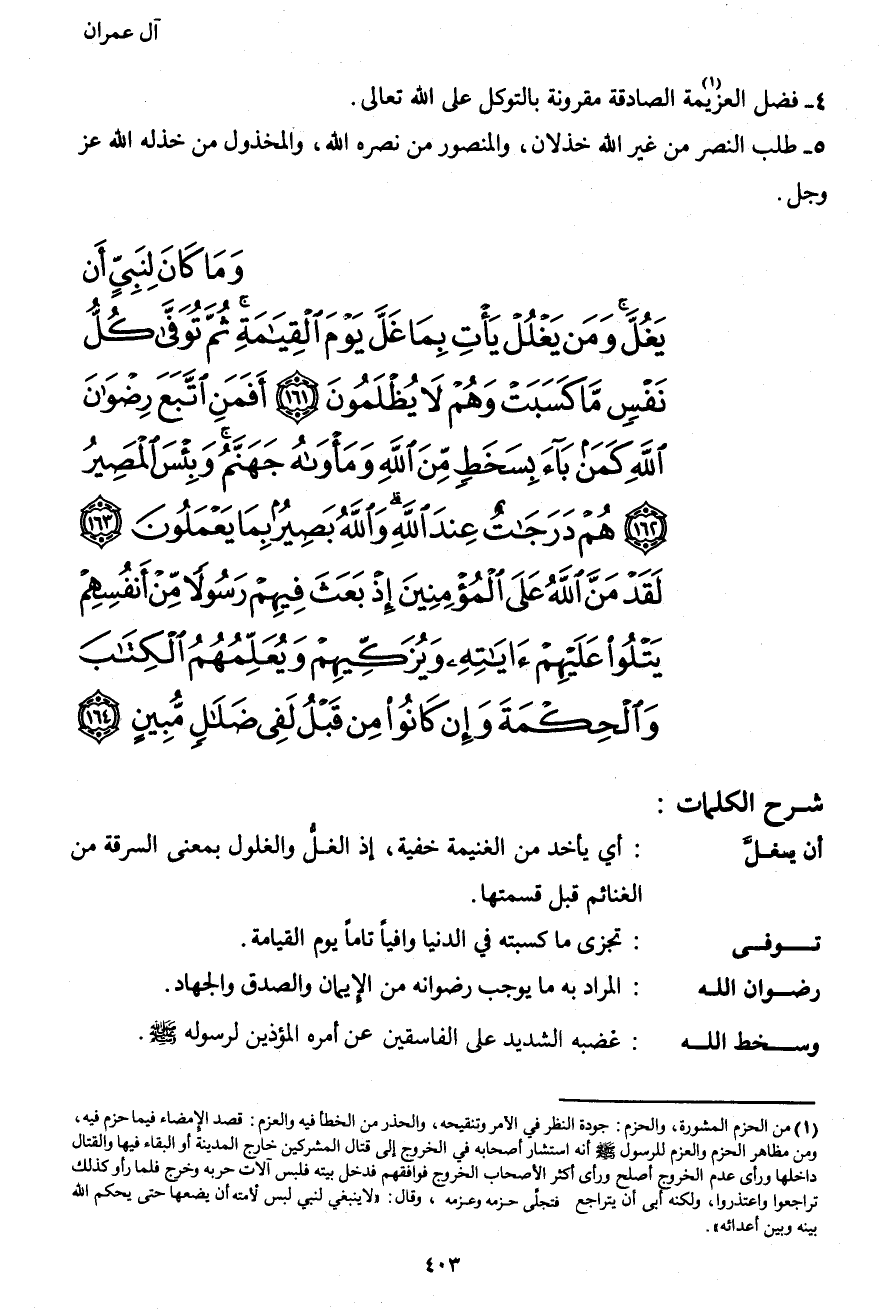 آل عمران
٤ـ فضل العزيمة(١) الصادقة مقرونة بالتوكل على الله تعالى.
٥ـ طلب النصر من غير الله خذلان، والمنصور من نصره الله، والمخذول من خذله الله عز
وجل.
وَمَا كَانَ لِنَبِيٍّ أَن
يَغُلَّ ۚ وَمَن يَغْلُلْ يَأْتِ بِمَا غَلَّ يَوْمَ ٱلْقِيَٰمَةِ ۚ ثُمَّ تُوَفَّىٰ كُلُّ
نَفْسٍ مَّا كَسَبَتْ وَهُمْ لَا يُظْلَمُونَ ١٦١ أَفَمَنِ ٱتَّبَعَ رِضْوَٰنَ
ٱللَّهِ كَمَنۢ بَآءَ بِسَخَطٍ مِّنَ ٱللَّهِ وَمَأْوَىٰهُ جَهَنَّمُ ۚ وَبِئْسَ ٱلْمَصِيرُ
١٦٢ هُمْ دَرَجَٰتٌ عِندَ ٱللَّهِ ۗ وَٱللَّهُ بَصِيرٌۢ بِمَا يَعْمَلُونَ ١٦٣
لَقَدْ مَنَّ ٱللَّهُ عَلَى ٱلْمُؤْمِنِينَ إِذْ بَعَثَ فِيهِمْ رَسُولًا مِّنْ أَنفُسِهِمْ
يَتْلُوا۟ عَلَيْهِمْ ءَايَٰتِهِۦ وَيُزَكِّيهِمْ وَيُعَلِّمُهُمُ ٱلْكِتَٰبَ
وَٱلْحِكْمَةَ وَإِن كَانُوا۟ مِن قَبْلُ لَفِى ضَلَٰلٍ مُّبِينٍ ١٦٤
شرح الكلمات :
أن يغلَّ : أي يأخد من الغنيمة خفية، إذ الغلُّ والغلول بمعنى السرقة من
الغنائم قبل قسمتها.
توفى : تجزى ما كسبته في الدنيا وافياً تاماً يوم القيامة.
رضوان الله : المراد به ما يوجب رضوانه من الإيمان والصدق والجهاد.
وسخط الله : غضبه الشديد على الفاسقين عن أمره المؤذين لرسوله ﷺ.
(١) من الحزم المشورة، والحزم: جودة النظر في الأمر وتنقيحه، والحذر من الخطأ فيه والعزم: قصد الإمضاء فيما حزم فيه،
ومن مظاهر الحزم والعزم للرسول ﷺ أنه استشار أصحابه في الخروج إلى قتال المشركين خارج المدينة أو البقاء فيها والقتال
داخلها ورأى عدم الخروج أصلح ورأى أكثر الأصحاب الخروج فوافقهم فدخل بيته فلبس آلات حربه وخرج فلما رأو كذلك
تراجعوا واعتذروا، ولكنه أبى أن يتراجع فتجلّى حزمه وعزمه ، وقال: «لاينبغي لنبي لبس لأمته أن يضعها حتى يحكم الله
بينه وبين أعدائه».
٤٠٣